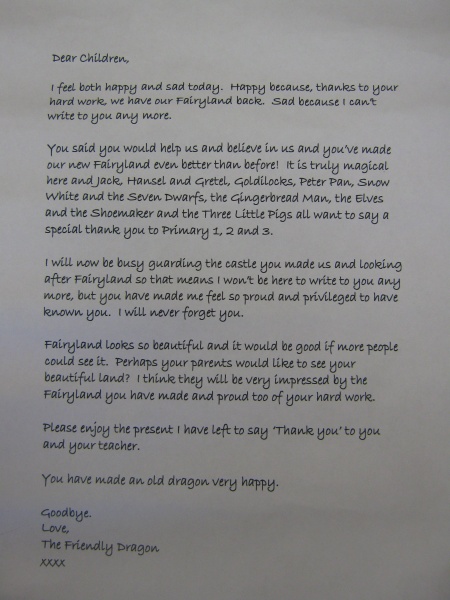 Dear Children,
I feel both happy and sad today. Happy because, thanks to your
hard work, we have our Fairyland back. Sad because I can't
write to you any more.
You said you would help us and believe in us and you've made
our new Fairyland even better than before! It is truly magical
here and Jack, Hansel and Gretel, Goldilocks, Peter Pan, Snow
White and the Seven Dwarfs, the Gingerbread Man, the Elves
and the Shoemaker and the Three Little Pigs all want to say a
special thank you to Primary 1, 2 and 3.
I will now be busy guarding the castle you made us and looking
after Fairyland so that means I won't be here to write to you any
more, but you have made me feel so proud and privileged to have
known you. I will never forget you.
Fairyland looks so beautiful and it would be good if more people
could see it. Perhaps your parents would like to see your
beautiful land? I think they will be very impressed by the
Fairyland you have made and proud too of your hard work.
Please enjoy the present I have left to say 'Thank you' to you
and your teacher.
You have made an old dragon very happy.
Goodbye.
Love,
The Friendly Dragon
xxxx